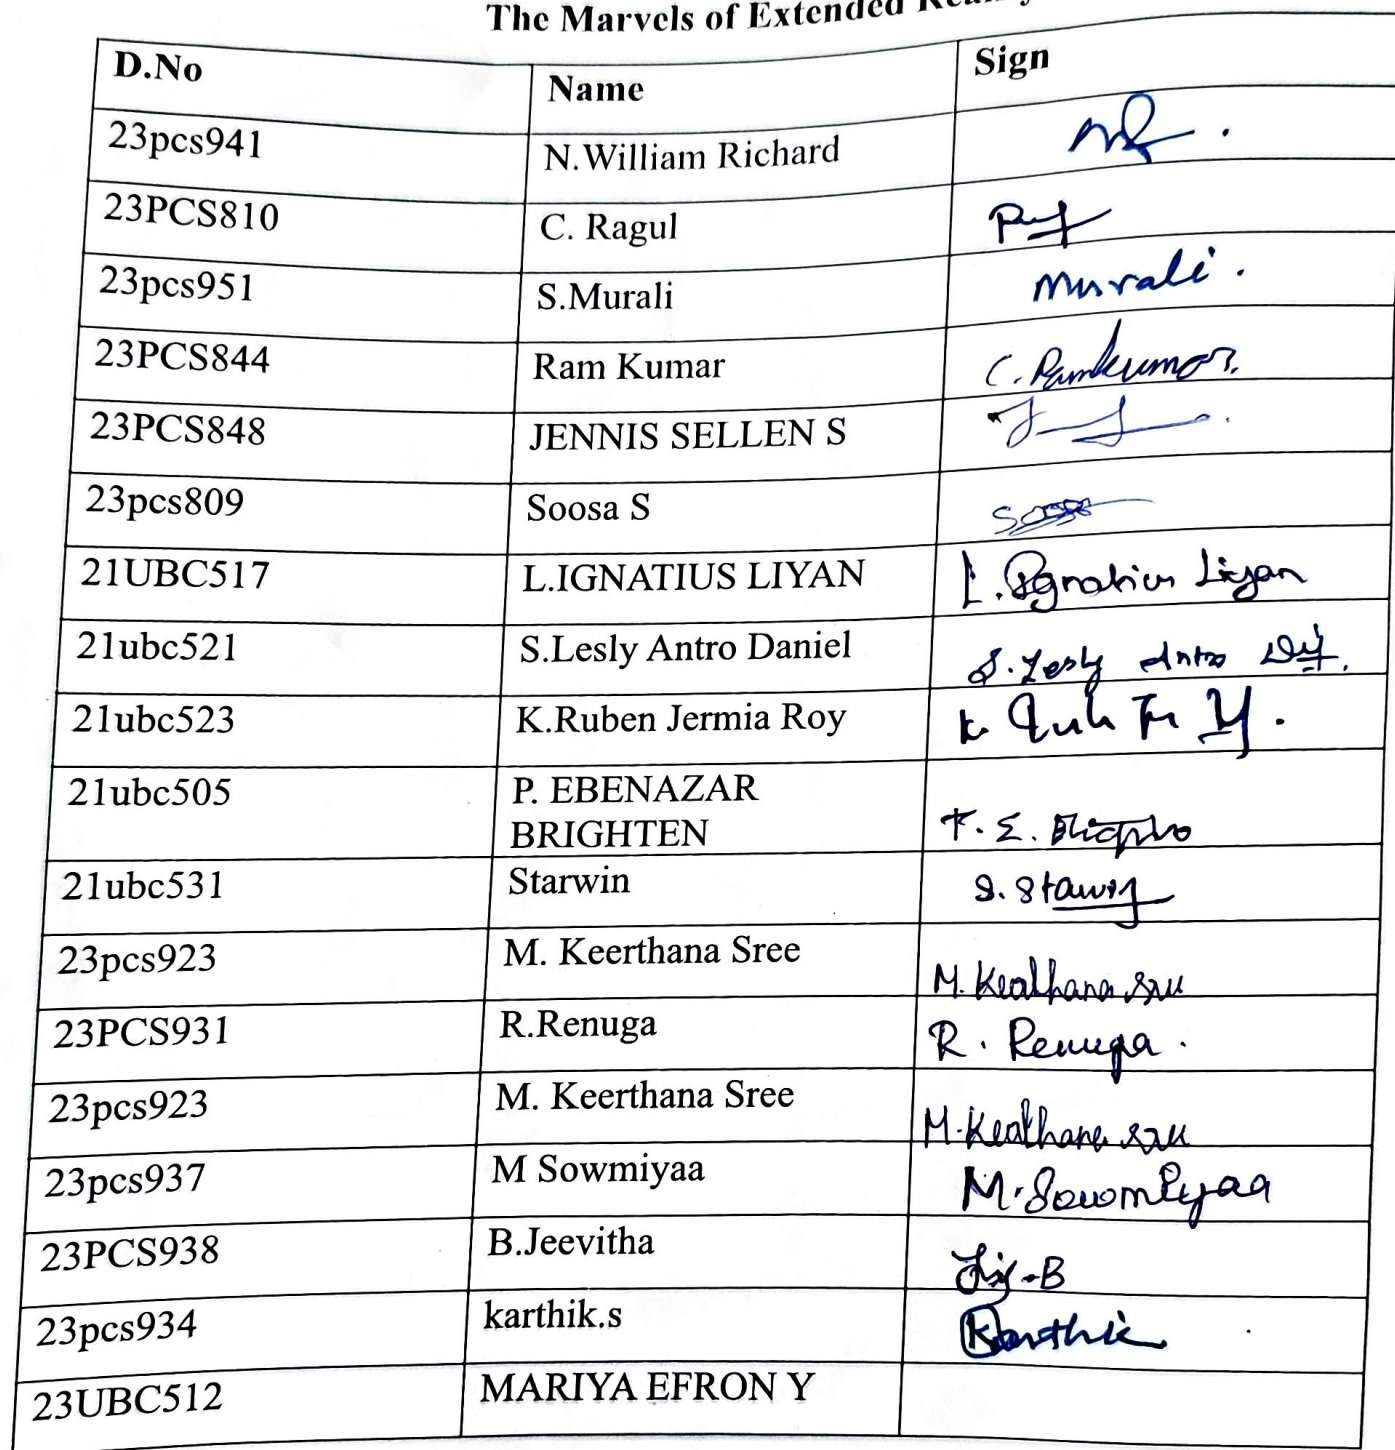 The Marvels of Extended
D.No Name Sign
23pcs941 N.William Richard
23PCS810 C. Ragul
23pcs951 S.Murali Murali.
23PCS844 Ram Kumar C. Ramkumar.
23PCS848 JENNIS SELLEN S
23pcs809 Soosa S
21UBC517 L.IGNATIUS LIYAN L. Ignatius Liyan
21ubc521 S.Lesly Antro Daniel S. Lesly Antro
21ubc523 K.Ruben Jermia Roy K.
21ubc505 P. EBENAZAR
BRIGHTEN
21ubc531 Starwin S. Starwin
23pcs923 M. Keerthana Sree M. Keerthana Sree
23PCS931 R.Renuga R. Renuga.
23pcs923 M. Keerthana Sree M. Keerthana Sree
23pcs937 M Sowmiyaa M. Sowmiyaa
23PCS938 B.Jeevitha
23pcs934 karthik.s Karthik
23UBC512 MARIYA EFRON Y